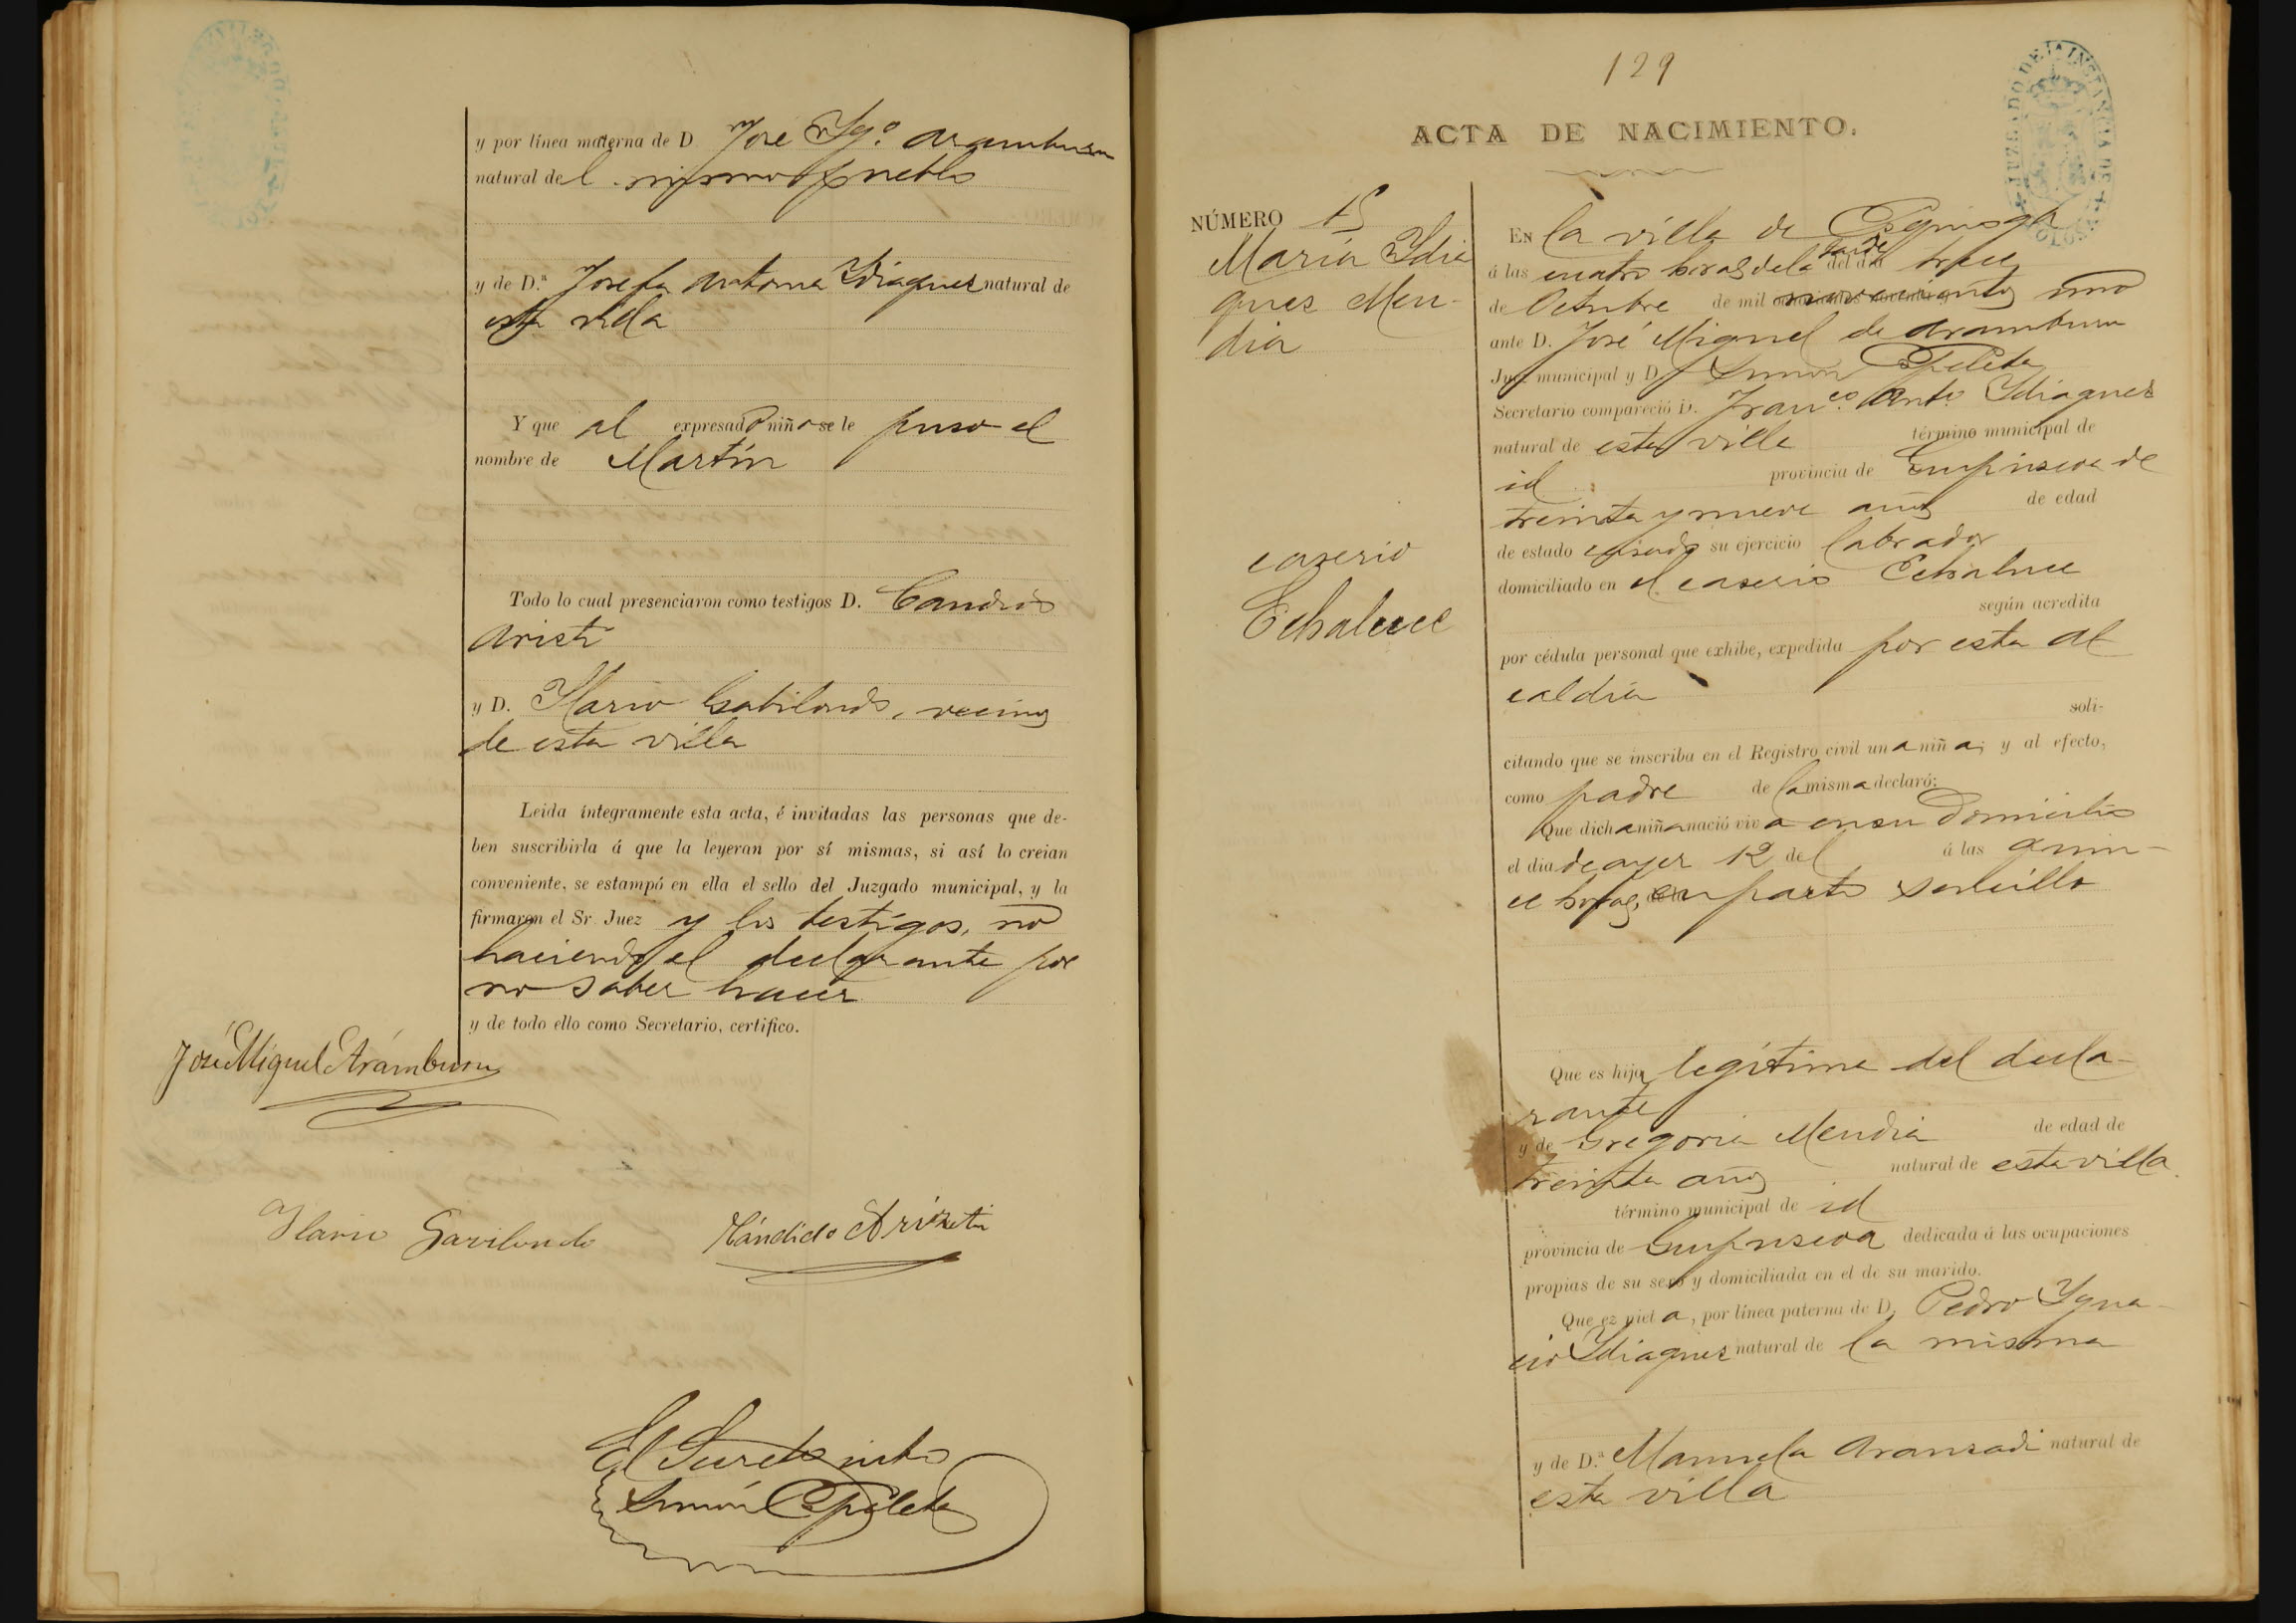 y por línea materna de D José Ygo. Aramburu
natural del mismo pueblo
y de D.ª Josefa Antonia Ydiaquez natural de
esta villa
Y que al expresado niño se le puso el
nombre de Martín
Todo lo cual presenciaron como testigos D. Candido
Aristi
y D. Ylario Gabilondo, vecinos
de esta villa
Leida íntegramente esta acta, é invitadas las personas que de-
ben suscribirla á que la leyeran por sí mismas, si así lo creian
conveniente, se estampó en ella el sello del Juzgado municipal, y la
firmaron el Sr. Juez y los testigos, no
haciendo el declarante por
no saber hacer
y de todo ello como Secretario, certifico.
José Miguel Arámburu
Ylario Gavilondo Cándido Arizeti
El Secretario
Simón
129
ACTA DE NACIMIENTO.
JUZGADO DE 1ª INSTANCIA DE
NÚMERO 15
María Ydia
quez Men-
dia
caserio
Echaluce
En la villa de
á las cuatro horas de la tarde del dia trece
de Octubre de mil novecientos uno
ante D. José Miguel de Aramburu
Juez municipal y D. Simón
Secretario compareció D. Franco. Anto. Ydiaquez
natural de esta villa término municipal de
id provincia de Guipuzcoa de
treinta y nueve años de edad
de estado casado su ejercicio labrador
domiciliado en el caserio Echaluce
según acredita
por cédula personal que exhibe, expedida por esta Al
caldia
soli-
citando que se inscriba en el Registro civil una niña; y al efecto,
como padre de la misma declaró:
Que dicha niña nació viva en su domicilio
el dia de ayer 12 del á las quin-
ce horas, en parto sencillo
Que es hija legítima del decla-
rante
y de Gregoria Mendia de edad de
treinta años natural de esta villa
término municipal de id
provincia de Guipuzcoa dedicada á las ocupaciones
propias de su sexo y domiciliada en el de su marido.
Que ez nieta, por línea paterna de D. Pedro Ygna-
cio Ydiaquez natural de la misma
y de D.ª Manuela Aranzadi natural de
esta villa